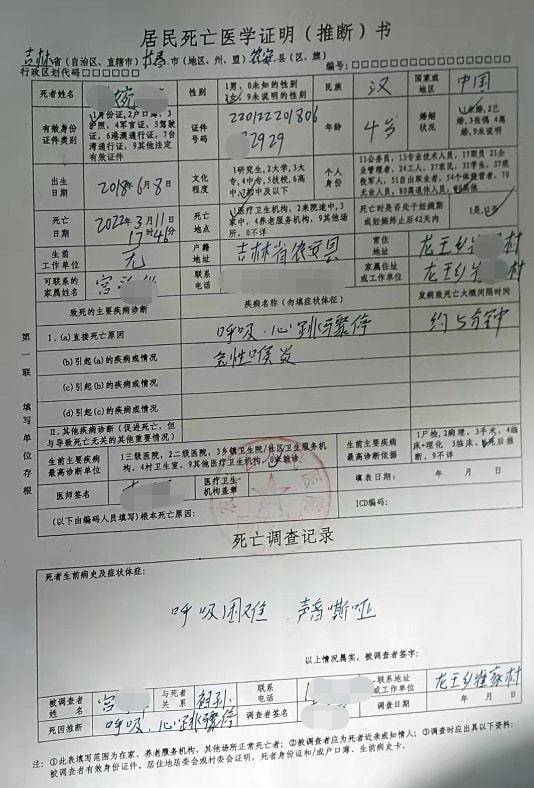 居民死亡医学证明（推断）书
吉林省（自治区、直辖市）长春市（地区、州、盟）农安县（区、旗）
行政区划代码□□□□□□ 编号：□□□□□□□□□□□□□□□□
死者姓名 性别 1男，0未知的性别 2女，9未说明的性别 民族 汉 国家或地区 中国
有效身份证件类别 1身份证，2户口簿，3护照，4军官证，5驾驶证，6港澳通行证，7台湾通行证，9其他法定有效证件 证件号码 220122201806 2929 年龄 4岁 婚姻状况 1未婚，2已婚，3丧偶，4离婚，9未说明
出生日期 2018年6月8日 文化程度 1研究生，2大学，3大专，4中专，5技校，6高中，7初中及以下 个人身份 11公务员，13专业技术人员，17职员，21企业管理者，24工人，27农民，31学生，37现役军人，51自由职业者，54个体经营者，70无业人员，80离退休人员，90其他
死亡日期 2022年3月11日 17时46分 死亡地点 1医疗卫生机构，2来院途中，3家中，4养老服务机构，9其他场所，0不详 死亡时是否处于妊娠期或妊娠终止后42天内 1是，2否
生前工作单位 无 户籍地址 吉林省农安县 常住地址 龙王乡 村
可联系的家属姓名 宫 联系电话 家属住址或工作单位 龙王乡 村
致死的主要疾病诊断 疾病名称（勿填症状体征） 发病致死亡大概间隔时间
第一联 填写单位存根
Ⅰ.(a)直接死亡原因 呼吸、心跳骤停 约5分钟
(b)引起(a)的疾病或情况 急性喉炎
(c)引起(b)的疾病或情况
(d)引起(c)的疾病或情况
Ⅱ.其他疾病诊断（促进死亡，但与导致死亡无关的其他重要情况）
生前主要疾病最高诊断单位 1三级医院，2二级医院，3乡镇卫生院/社区卫生服务机构，4村卫生室，9其他医疗卫生机构，0未就诊 生前主要疾病最高诊断依据 1尸检，2病理，3手术，4临床+理化，5临床，6死后推断，9不详
医师签名 医疗卫生机构盖章 填表日期： 年 月 日
（以下由编码人员填写）根本死亡原因： ICD编码：
死亡调查记录
死者生前病史及症状体征：
呼吸困难 声音嘶哑
以上情况属实，被调查者签字：
被调查者姓名 宫 与死者关系 祖孙 联系电话 联系地址或工作单位 龙王乡崔家村
死因推断 呼吸、心跳骤停 调查者签名 调查日期 年 月 日
注：①此表填写范围为在家、养老服务机构、其他场所正常死亡者；②被调查者应为死者近亲或知情人；③调查时应出具以下资料：
被调查者有效身份证件，居住地居委会或村委会证明，死者身份证和/或户口簿、生前病史卡。